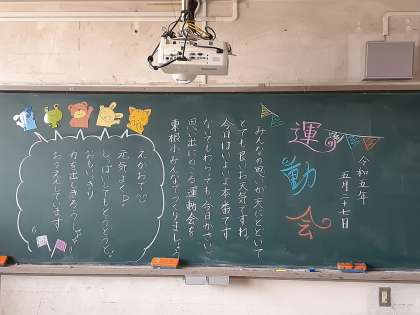 令和五年
五月二十七日
運動会
みんなの思いが天にとどいて
とても良いお天気ですね。
今日はいよいよ本番です。
ないても わらっても 今日がさいご
思い出にのこる運動会を
東根小みんなでつくりましょう
えがおで
元気よく
しっぱいしてもどうどうと
おもいっきり
力を出しきろう
おうえんしています